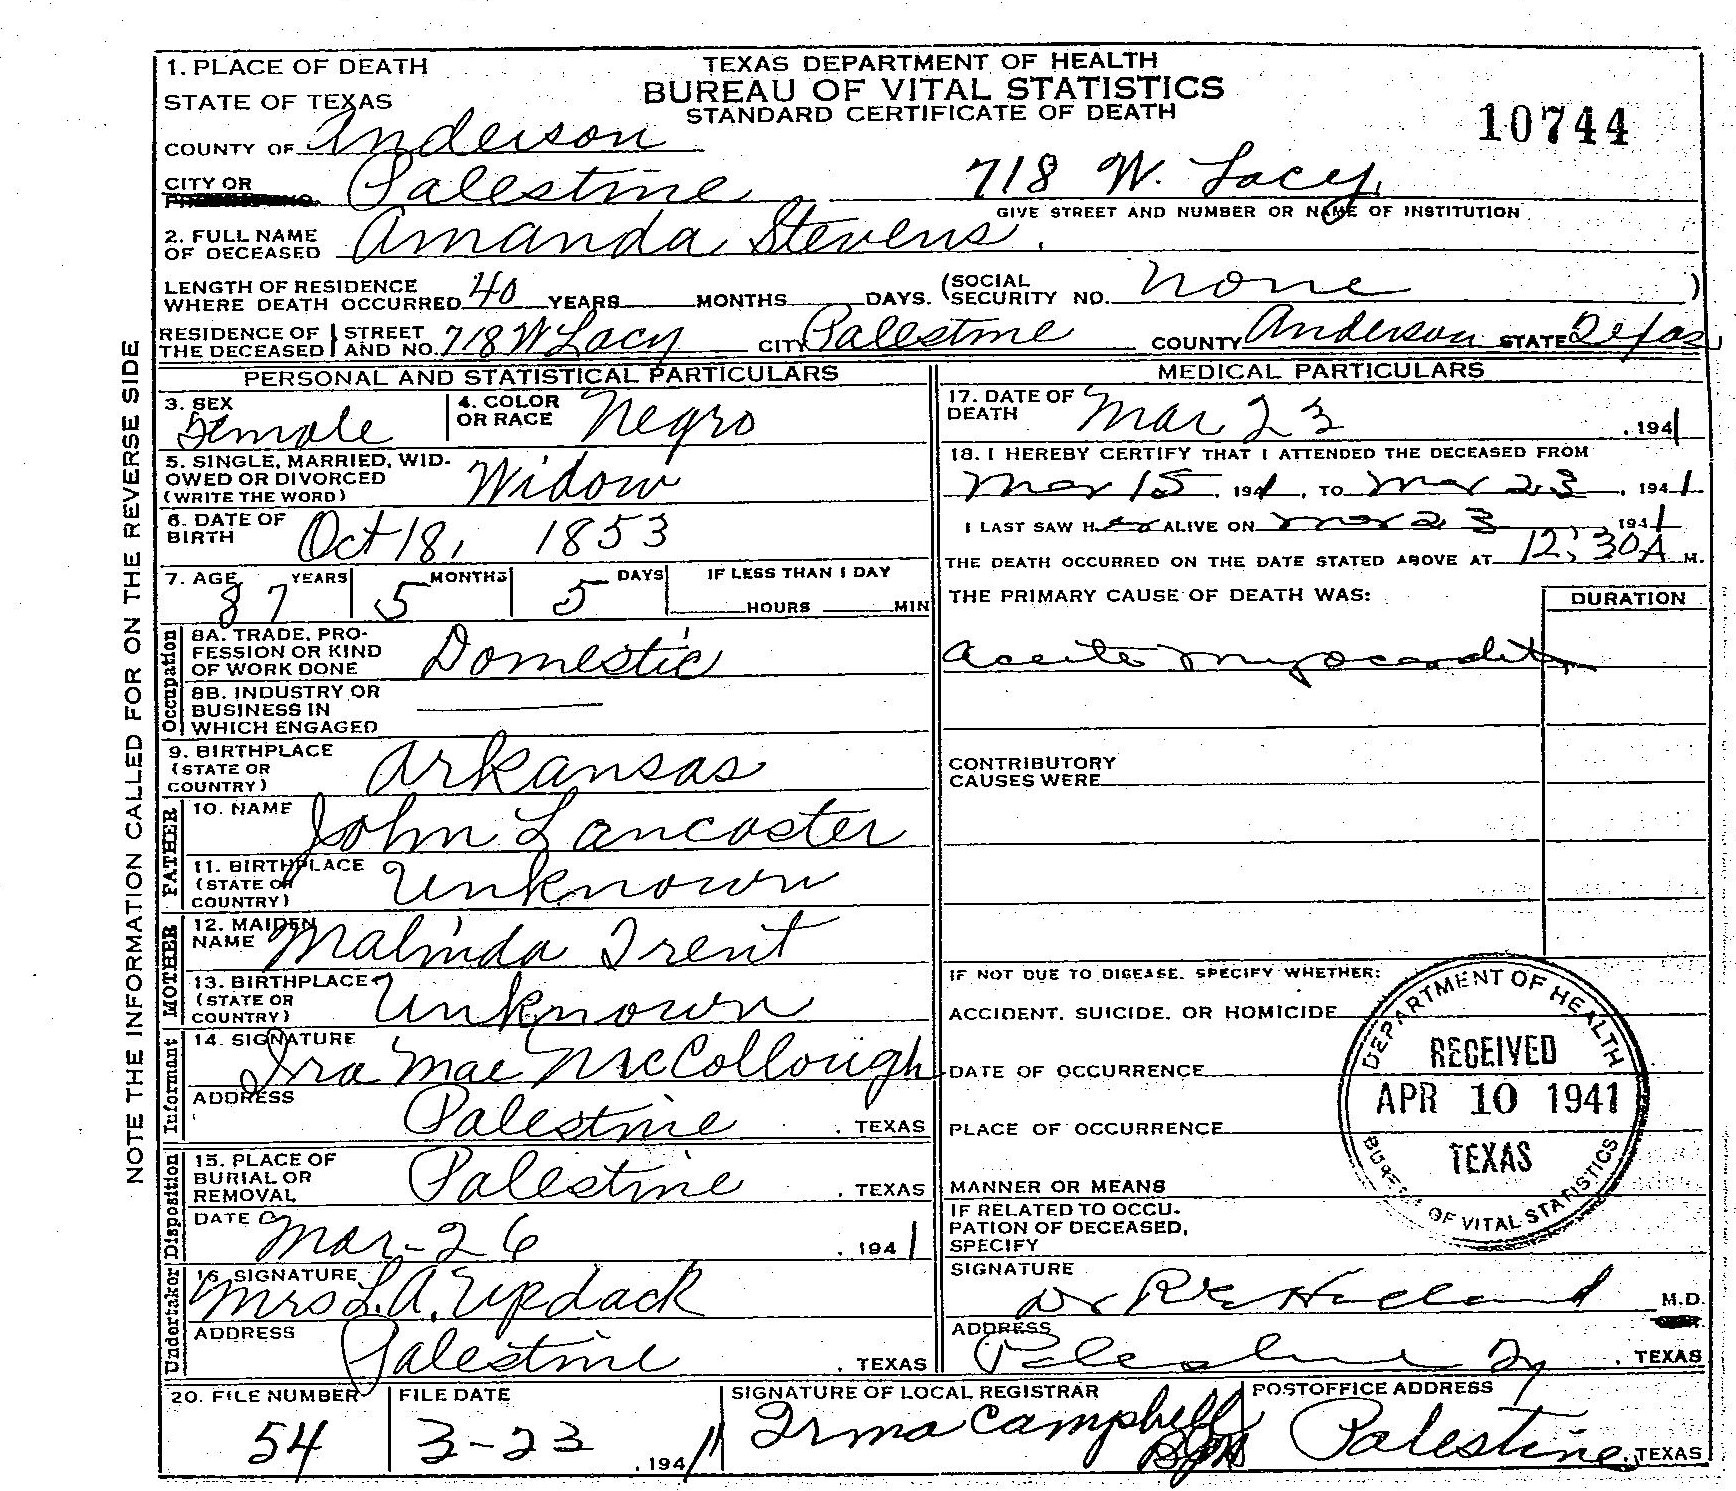 1. PLACE OF DEATH
TEXAS DEPARTMENT OF HEALTH
STATE OF TEXAS
BUREAU OF VITAL STATISTICS
STANDARD CERTIFICATE OF DEATH
10744
COUNTY OF Anderson
CITY OR Palestine 718 W. Lacy
GIVE STREET AND NUMBER OR NAME OF INSTITUTION
2. FULL NAME
OF DECEASED Amanda Stevens.
LENGTH OF RESIDENCE
WHERE DEATH OCCURRED 40 YEARS MONTHS DAYS. (SOCIAL SECURITY NO. none )
RESIDENCE OF THE DECEASED } STREET AND NO. 718 W Lacy CITY Palestine COUNTY Anderson STATE Texas
NOTE THE INFORMATION CALLED FOR ON THE REVERSE SIDE
PERSONAL AND STATISTICAL PARTICULARS
3. SEX Female
4. COLOR OR RACE Negro
5. SINGLE, MARRIED, WID-
OWED OR DIVORCED
(WRITE THE WORD) Widow
6. DATE OF
BIRTH Oct 18, 1853
7. AGE 87 YEARS 5 MONTHS 5 DAYS IF LESS THAN 1 DAY
HOURS MIN
Occupation
8A. TRADE, PRO-
FESSION OR KIND
OF WORK DONE Domestic
8B. INDUSTRY OR
BUSINESS IN
WHICH ENGAGED
9. BIRTHPLACE
(STATE OR
COUNTRY) Arkansas
FATHER
10. NAME John Lancaster
11. BIRTHPLACE
(STATE OR
COUNTRY) Unknown
MOTHER
12. MAIDEN
NAME Malinda Trent
13. BIRTHPLACE
(STATE OR
COUNTRY) Unknown
Informant
14. SIGNATURE Ira Mae McCollough
ADDRESS Palestine , TEXAS
Disposition
15. PLACE OF
BURIAL OR
REMOVAL Palestine , TEXAS
DATE Mar-26 , 1941
Undertaker
16. SIGNATURE Mrs L.A. Updack
ADDRESS Palestine , TEXAS
MEDICAL PARTICULARS
17. DATE OF
DEATH Mar 23 , 1941
18. I HEREBY CERTIFY THAT I ATTENDED THE DECEASED FROM
Mar 15 , 1941, TO Mar 23 , 1941
I LAST SAW Her ALIVE ON Mar 23 1941
THE DEATH OCCURRED ON THE DATE STATED ABOVE AT 12:30A M.
THE PRIMARY CAUSE OF DEATH WAS: DURATION
Acute Myocarditis
CONTRIBUTORY
CAUSES WERE
IF NOT DUE TO DISEASE, SPECIFY WHETHER:
ACCIDENT, SUICIDE, OR HOMICIDE
DATE OF OCCURRENCE
PLACE OF OCCURRENCE
MANNER OR MEANS
IF RELATED TO OCCU-
PATION OF DECEASED,
SPECIFY
DEPARTMENT OF HEALTH
RECEIVED
APR 10 1941
TEXAS
BUREAU OF VITAL STATISTICS
SIGNATURE Dr R E Holland M.D.
ADDRESS Palestine , TEXAS
20. FILE NUMBER 54
FILE DATE 3-23 , 1941
SIGNATURE OF LOCAL REGISTRAR Irma Campbell
POSTOFFICE ADDRESS Palestine , TEXAS